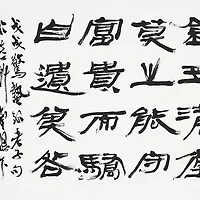 金玉滿堂
莫之能守
富貴而驕
自遺其咎
戊戌驚蟄老子句